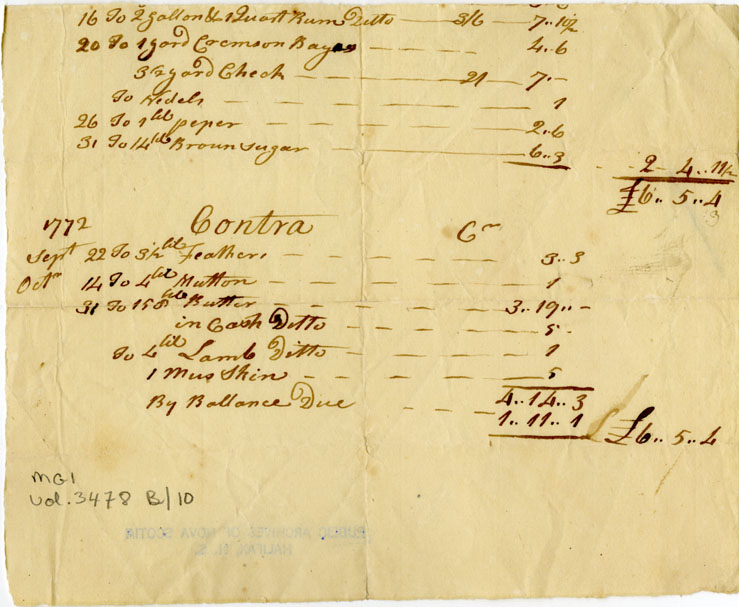 16 To 2 gallon & 1 Quart Rum Ditto — 3/6 — 7..10½
20 To 1 yard Cremson Bayas — — — 4..6
3½ yard Check — — — 2/ — 7..–
To Nedels — — — — — 1
26 To 1 lb peper — — — — 2..6
31 To 14 lb Broun sugar — 6..3 — 2– 4..11½
£6.. 5..4
3
1772 Contra Cr
Sept 22 To 3½ lb Feathers — — — 3..3
Octr 14 To 4 lb Mutton — — — 1
31 To 158 lb Butter — — — 3..19..–
in Cash Ditto — — — 5 –
To 4 lb Lamb Ditto — — — 1
1 Mus Skin — — — 5
4..14..3
By Ballance Due — — — 1..11..1 £6..5..4
MG1
Vol. 3478 B/10
PUBLIC ARCHIVES OF NOVA SCOTIA
HALIFAX, N. S.